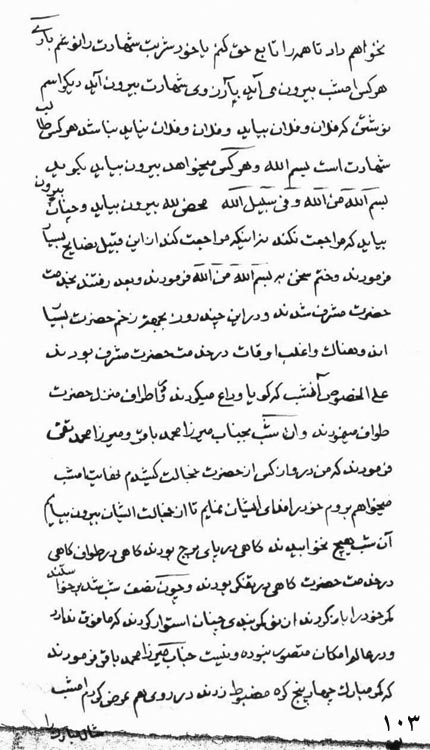 نخواهم داد تا همه را تابع حق کنم یا خود شربت شهادت را نوشم باری
هر کس امشب بیرون می آید بآرزوی شهادت بیرون آید دیگر اسم
نوشتن که فلان و فلان بیاید و فلان و فلان نیاید نباشد هر کس طالب
شهادت است بسم الله و هر کس میخواهد بیرون بیاید بگوید
بسم الله من الله و فی سبیل الله محض لله بیرون بیاید و چنان بیرون
بیاید که مراجعت نکند نه اینکه مراجعت کند از این قبیل نصایح بسیار
فرمودند و ختم سخن به بسم الله من الله فرمودند و بعد رفتند بخدمت
حضرت مشرف شدند و در این چند روزه بجهة زخم حضرت بسیار
اندوهناک و اغلب اوقات در خدمت حضرت مشرف بودند
علی الخصوص آنشب که گویا وداع میکردند و اطراف منزل حضرت
طواف مینمودند و آن شب بجناب میرزا محمد باقر و میرزا محمد تقی
فرمودند که من در روز از حضرت خجالت کشیدم لهذا امشب
میخواهم بروم خود را فدای ایشان نمایم تا از خجالت ایشان بیرون بیایم
آن شب هیچ نخوابیدند گاهی در پای برج بودند گاهی در طواف گاهی
در خدمت حضرت گاهی در تفکر بودند و چون نصف شب شد برخواستند
کمر خود را باز کردند از نو کمر بندی چنان استوار کردند که مافوق ندارد
و در عالم امکان متصور نبوده و نیست جناب میرزا محمد باقر فرمودند
که کمر مبارک چهار پنج گره مضبوط زدند در روی هم عرض کردم امشب
شال مبارک را
۱۰۳